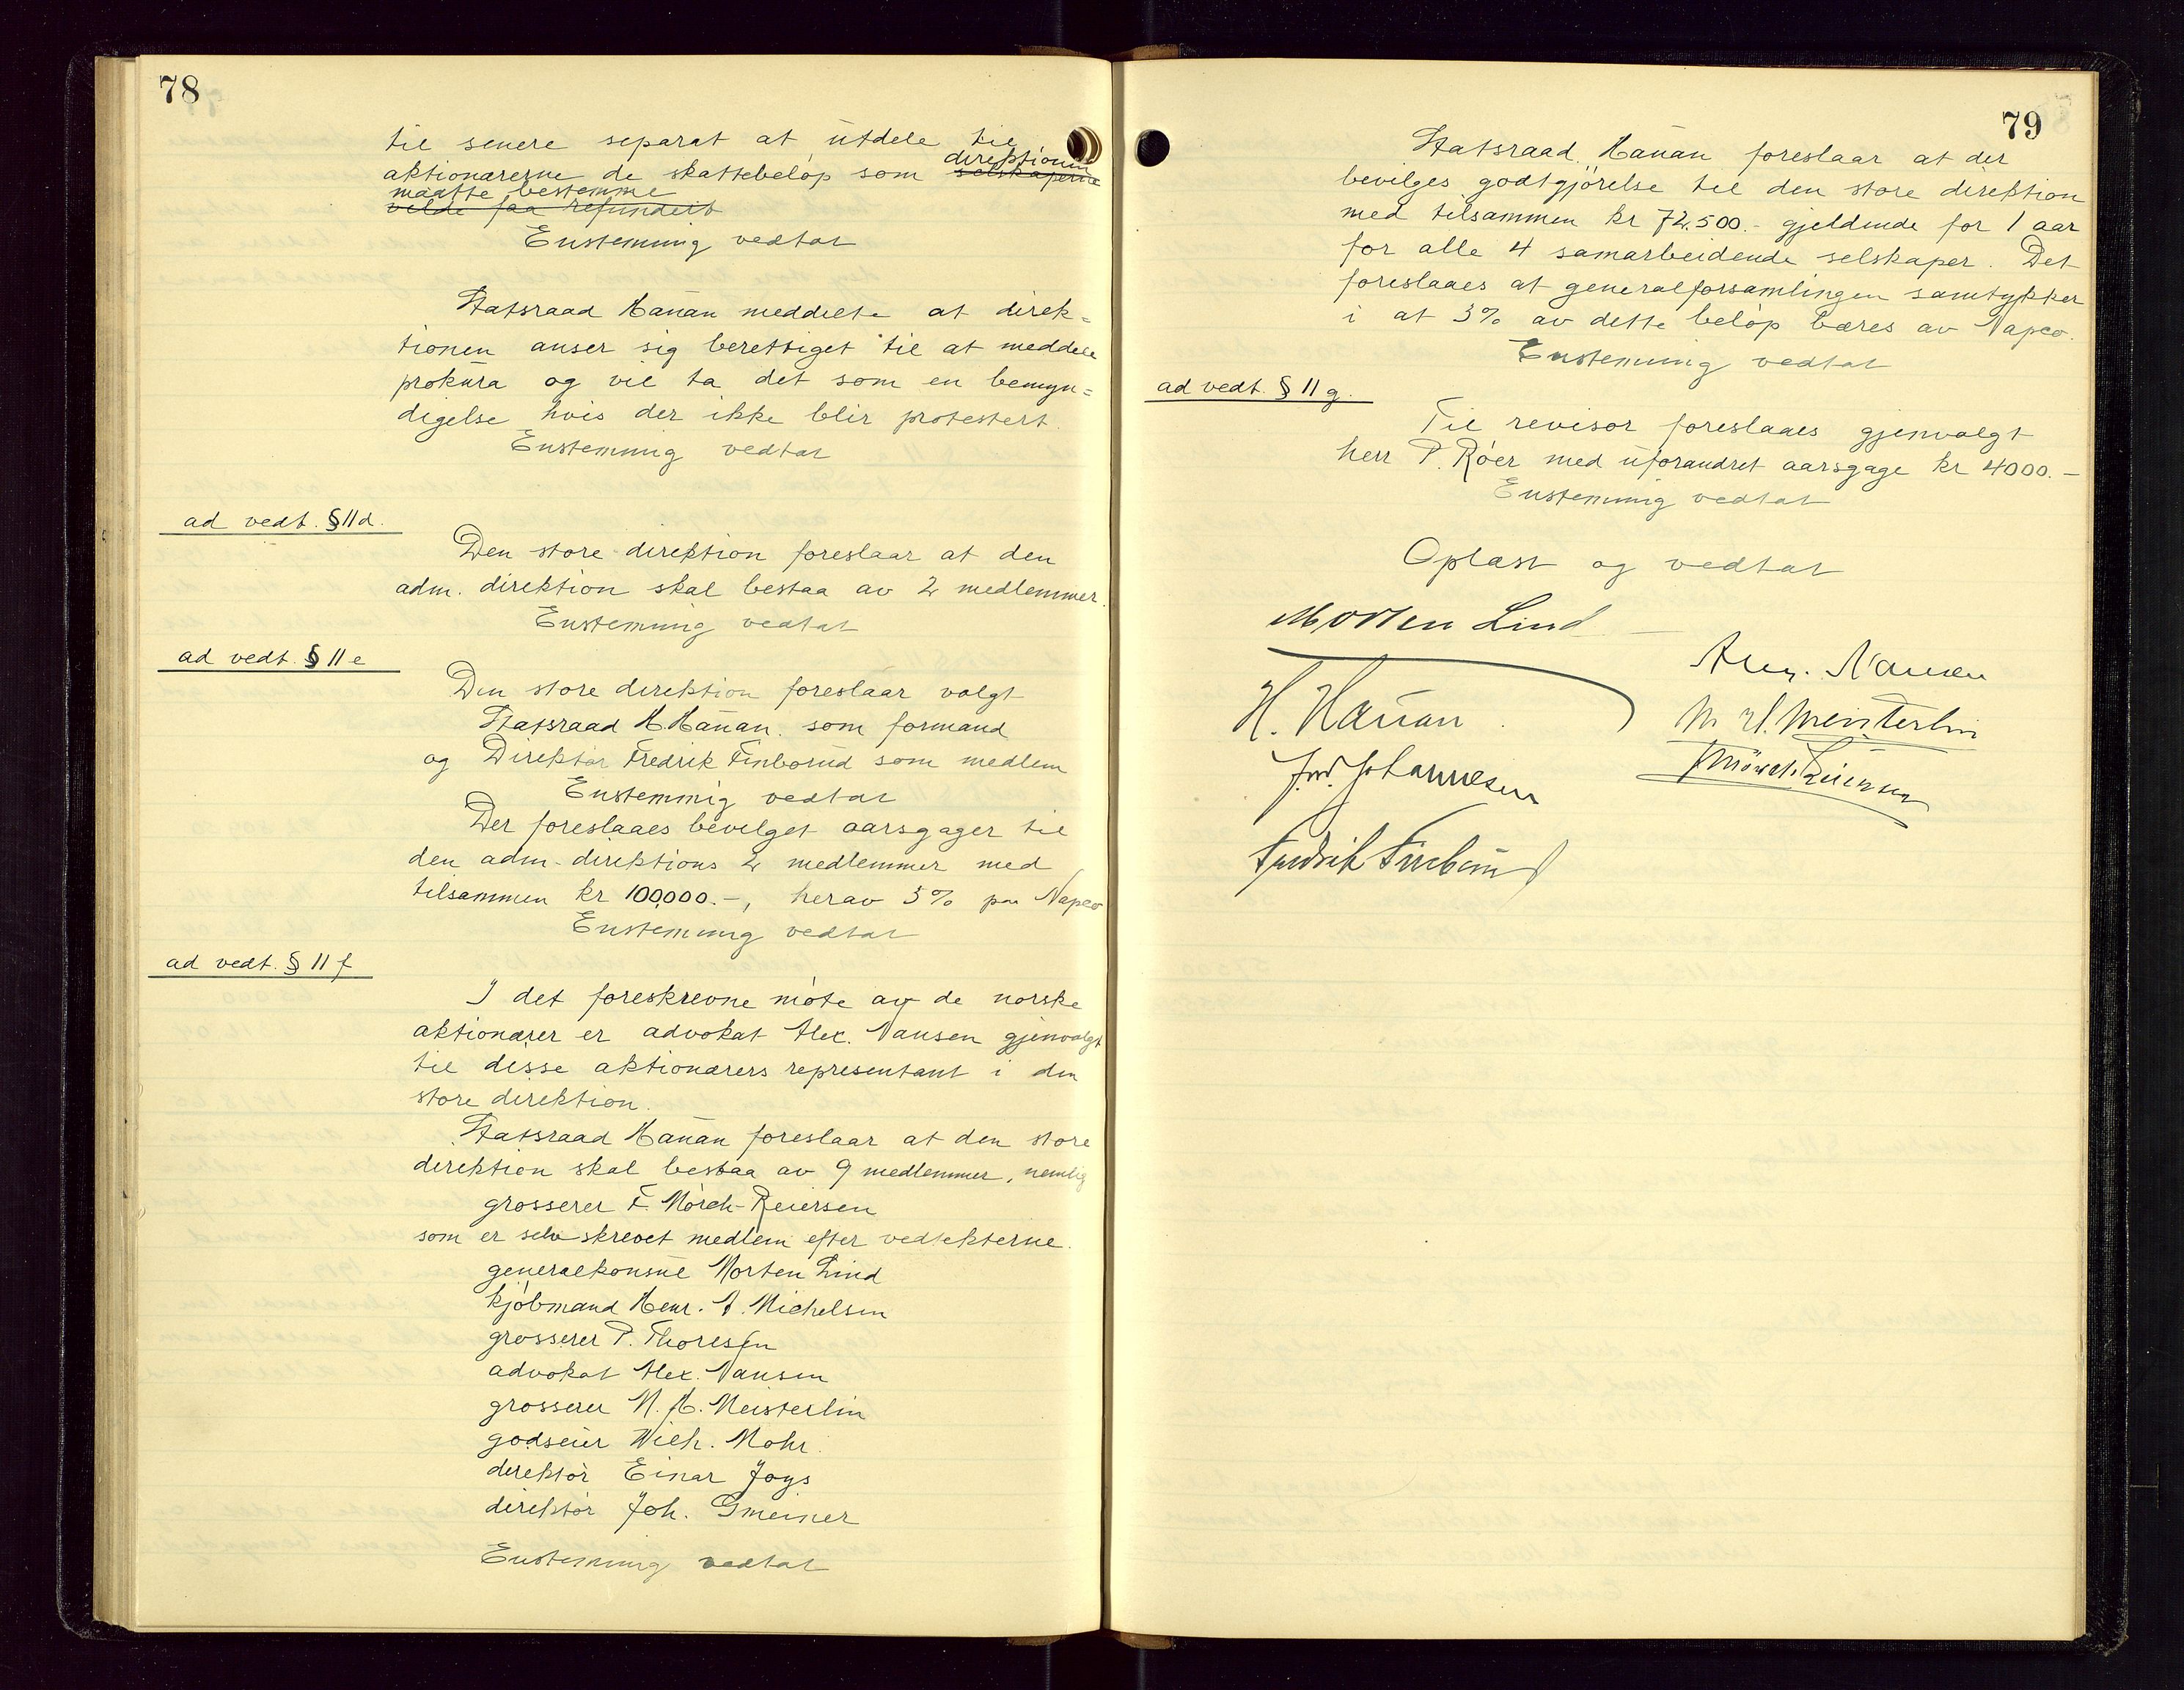 78
til senere separat at utdele til
direktionen
aktionærerne de skattebeløp som ~~selskaperne~~
maatte bestemme
~~vilde faa refundert~~
Enstemmig vedtat
Statsraad Hauan meddelte at direk=
tionen anser sig berettiget til at meddele
prokura og vil ta det som en bemyn=
digelse hvis der ikke blir protestert.
Enstemmig vedtat
ad vedt. § 11 d.
Den store direktion foreslaar at den
adm. direktion skal bestaa av 2 medlemmer.
Enstemmig vedtat
ad vedt. § 11 e
Den store direktion foreslaar valgt
Statsraad H Hauan. som formand
og Direktør Fredrik Finborud som medlem
Enstemmig vedtat
Der foreslaaes bevilget aarsgager til
den adm. direktions 2 medlemmer med
tilsammen kr 100,000.-, herav 3% paa Napco
Enstemmig vedtat
ad vedt. § 11 f
I det foreskrevne møte av de norske
aktionærer er advokat Alex. Nansen gjenvalgt
til disse aktionærers representant i den
store direktion.
Statsraad Hauan foreslaar at den store
direktion skal bestaa av 9 medlemmer, nemlig
grosserer F. Mørch-Reiersen
som er selvskrevet medlem efter vedtekterne.
generalkonsul Morten Lind
kjøbmand Henr. A. Michelsen
grosserer P. Thoresen
advokat Alex. Nansen
grosserer M. H. Meisterlin
godseier Wilh. Mohr.
direktør Einar Joys
direktør Joh. Gmeiner
Enstemmig vedtat
79
Statsraad Hauan foreslaar at der
bevilges godtgjørelse til den store direktion
med tilsammen kr 72.500.- gjeldende for 1 aar
for alle 4 samarbeidende selskaper. Det
foreslaaes at generalforsamlingen samtykker
i at 3% av dette beløp bæres av Napco.
Enstemmig vedtat
ad vedt. § 11 g.
Til revisor foreslaaes gjenvalgt
herr P. Röer med uforandret aarsgage kr 4000.-
Enstemmig vedtat
Oplæst og vedtat
Morten Lind
Alex. Nansen
H. Hauan.
M H. Meisterlin
Johannesen
F Mörch-Reiersen
Fredrik Finborud